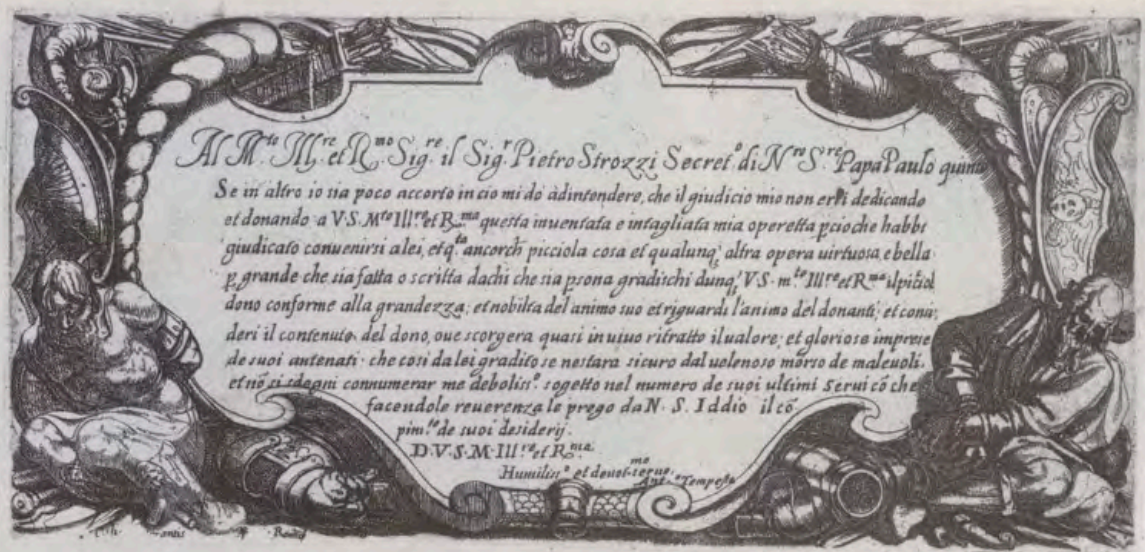 Al M.to Ill.re et R.mo Sig.re il Sig.r Pietro Strozzi Secret.o di N.ro S.re Papa Paulo quinto
Se in altro io sia poco accorto in cio mi do àdintendere, che il giudicio mio non erri dedicando
et donando a V.S. M.to Ill.re et R.ma questa inuentata e intagliata mia operetta pcioche habbi
giudicato conuenirsi a lei, et q.ta ancorch picciola cosa et qualunq; altra opera uirtuosa e bella
p grande che sia fatta o scritta da chi che sia psona gradischi dunq; V.S. m.to Ill.re et R.ma il piciol
dono conforme alla grandezza; et nobilta del animo suo et riguardi l'animo del donante; et consi,
deri il contenuto del dono, oue scorgera quasi in uiuo ritratto il ualore; et gloriose imprese
de suoi antenati: che cosi da lei gradito se nestara sicuro dal uelenoso morso de maleuoli.
et nō si sdegni connumerar me deboliss.o sogetto nel numero de suoi ultimi serui cō che
facendole reuerenza le prego da N. S. Iddio il cō
pim.to de suoi desiderij.
D.V.S.M. Ill.re et R.ma
Humiliss.o et deuot.mo seruo.
Ant.o Tempesta